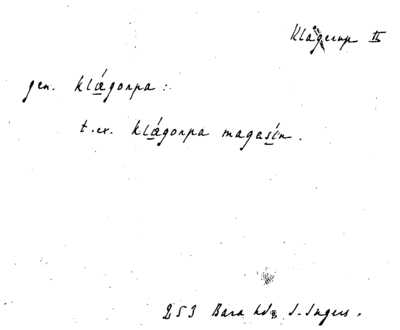 Klågerup II
gen. klágorpa:
t.ex. klágorpa magasín.
253 Bara hd, S. Ingers.